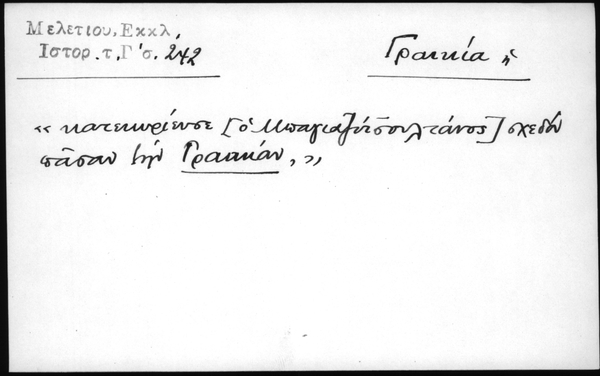 Μελετίου, Εκκλ,
Ιστορ.τ,Γ'σ. 242
Γραικία, ἡ
« κατεκυρίευσε [ὁ Μπαγιαζὴτ σουλτάνος] σχεδὸν
πᾶσαν τὴν Γραικίαν, »